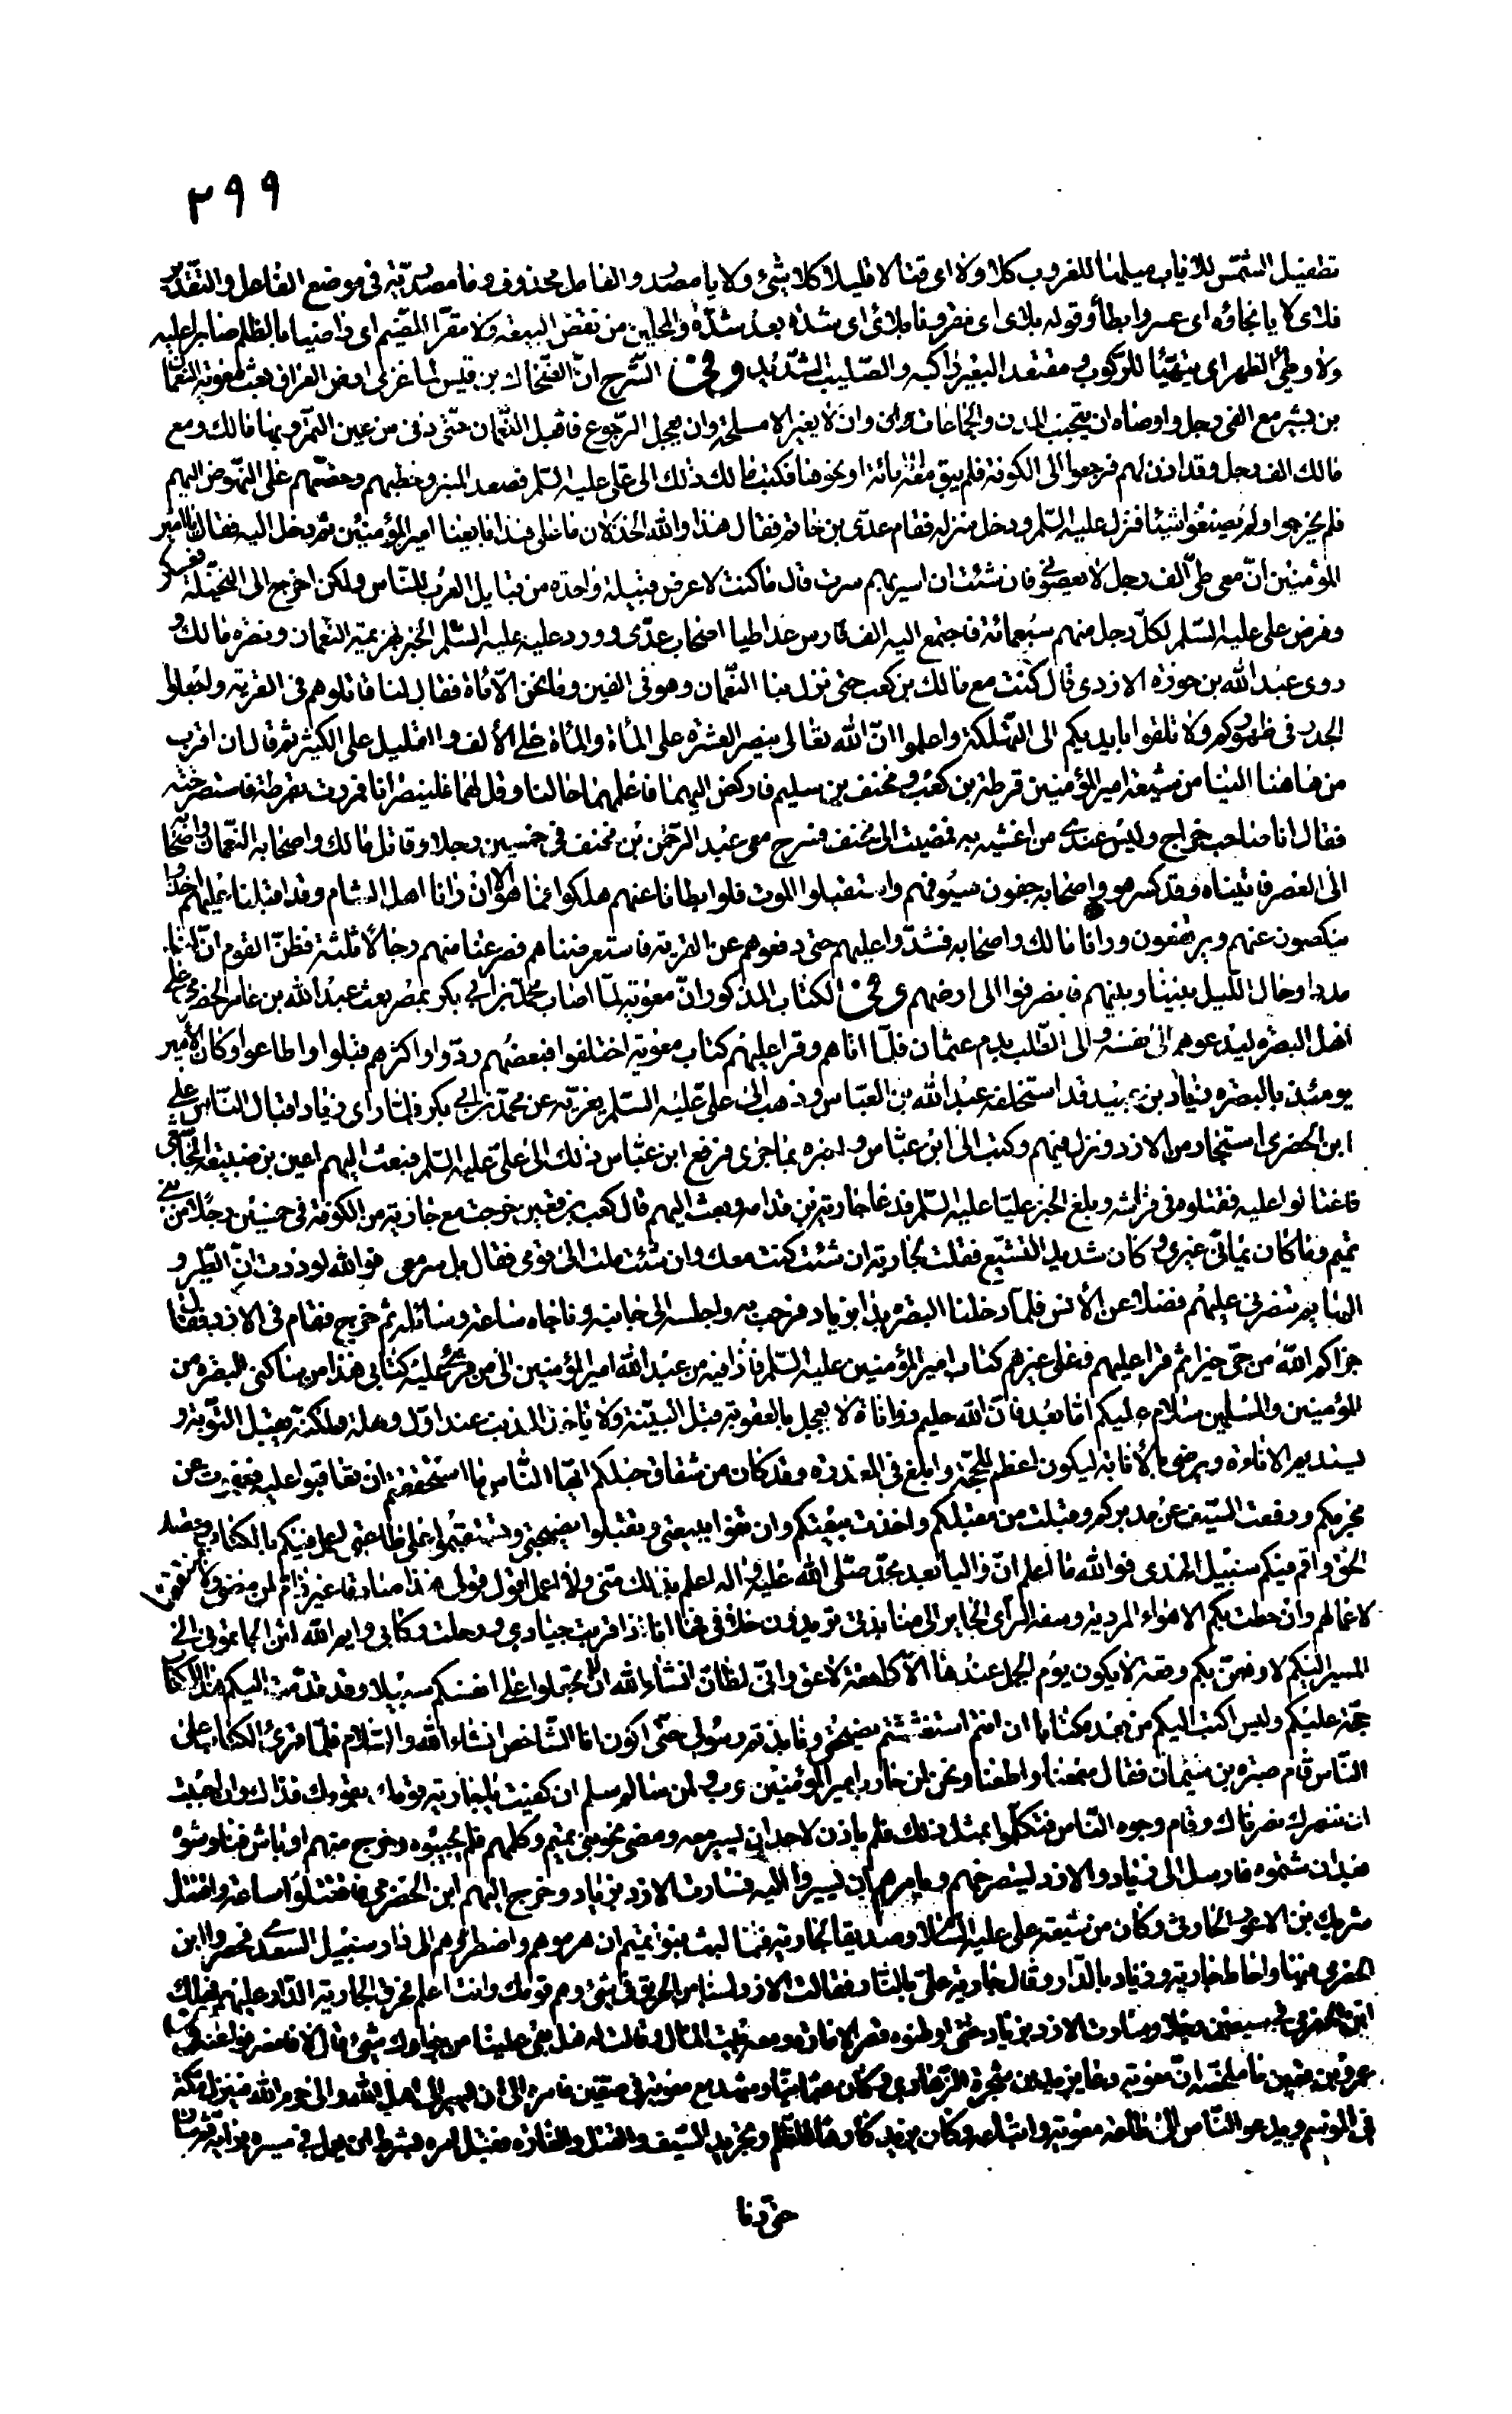 ٢٩٩
تطفيل الشمس للاياب ميلها للغروب كلا ولا اى قتالا قليلا كلا شئ ولايا مصدر والفاعل محذوف وما مصدرية فى موضع الفاعل والتقدير
فلاى لايا نجاؤه اى عسر وابطأ وقوله بلاى اى مقرونا بلائ اى بشدة بعد شدة والمحلين من نقض البيعة ولا مقرا للضيم اى راضيا بالظلم صابرا عليه
ولا وطئ الظهر اى متهيئا للركوب ومقتعد البعير راكبه والصليب الشديد وفى الشرح ان الضحاك بن قيس لما غزى ارض العراق بعث معوية النعمان
بن بشير مع الفى رجل واوصاه ان يتجنب المدن والجماعات وان لا يغير الا مسلحة وان يعجل الرجوع فاقبل النعمان حتى دنى من عين التمر وبها مالك ومع
مالك الف رجل وقد اذن لهم فرجعوا الى الكوفة فلم يبق معه الا مائة او نحوها فكتب مالك ذلك الى على عليه السلم فصعد المنبر وخطبهم وحضهم على النهوض اليهم
فلم يخرجوا ولم يصنعوا شيئا فنزل عليه السلم ودخل منزله فقام عدى بن حاتم فقال هذا والله الخذلان ما على هذا بايعنا امير المؤمنين ثم دخل اليه فقال يا امير
المؤمنين ان معى طى الف رجل لا يعصونى فان شئت ان اسير بهم سرت قال ما كنت لاعرض قبيلة واحدة من قبايل العرب للناس ولكن اخرج الى النخيلة فعسكر
وفرض على عليه السلم لكل رجل منهم سبعمائة فاجتمع اليه الف فارس عدا طيا اصحاب عدى وورد عليه عليه السلم الخبر بهزيمة النعمان ونصرة مالك و
روى عبد الله بن حوزة الازدى قال كنت مع مالك بن كعب حتى نزل بنا النعمان وهو فى الفين وما نحن الا مأة فقال لنا قاتلوهم فى القرية واجعلوا
الجدر فى ظهوركم ولا تلقوا بايديكم الى التهلكة واعلموا ان الله تعالى ينصر العشرة على المأة والمأة على الألف والقليل على الكثير ثم قال ان اقرب
من هاهنا الينا من شيعة امير المؤمنين قرظة بن كعب ومخنف بن سليم فاركض اليهما فاعلمهما حالنا وقل لهما فلينصرانا فمررت بقرظة فاستصرخته
فقال انا صاحب خراج وليس عندى من اغيثه به فمضيت الى مخنف فسرح معى عبد الرحمن بن مخنف فى خمسين رجلا وقاتل مالك واصحابه النعمان واصحابه
الى العصر فاتيناه وقد كسر هو واصحابه جفون سيوفهم واستقبلوا الموت فلو ابطانا عنهم هلكوا فما هو الا ان رانا اهل الشام وقد اقبلنا عليهم اخذوا
ينكصون عنهم ويرتفعون ورانا مالك واصحابه فشدوا عليهم حتى دفعوهم عن القرية فاستعرضناهم فصرعنا منهم رجالا ثلثة فظن القوم ان لنا
مددا وحال الليل بيننا وبينهم فانصرفوا الى ارضهم وفى الكتاب المذكور ان معوية لما اصاب محمد بن ابى بكر بمصر بعث عبد الله بن عامر الحضرمى على
اهل البصرة ليدعوهم الى نفسه والى الطلب بدم عثمان فلما اتاهم وقرا عليهم كتاب معوية اختلفوا فبعضهم ردوا واكثرهم قبلوا واطاعوا وكان الامير
يومئذ بالبصرة زياد بن عبيد قد استخلفه عبد الله بن العباس وذهب الى على عليه السلم يعزيه عن محمد بن ابى بكر فلما راى زياد اقبال الناس على
ابن الحضرمى استجار من الازد ونزل فيهم وكتب الى ابن عباس واخبره بما جرى فرفع ابن عباس ذلك الى على عليه السلم فبعث اليهم اعين بن ضبيعة المجاشعى
فاغتالوا عليه فقتلوه فى فراشه وبلغ الخبر عليا عليه السلم فدعا جارية بن قدامه وبعث اليهم قال كعب بن قعين خرجت مع جارية من الكوفة فى خمسين رجلا من بنى
تميم وما كان يمانى غيرى وكان شديد التشيع فقلت لجارية ان شئت كنت معك وان شئت ملت الى قومى فقال بل سر معى فوالله لوددت ان الطير و
البهايم تنصرنى عليهم فضلا عن الأنس فلما دخلنا البصرة بدا بزياد فرحب به واجلسه الى جانبه وناجاه ساعة وسائله ثم خرج فقام فى الازد فقال
جزاكم الله من حى خيرا ثم قرا عليهم وعلى غيرهم كتاب امير المؤمنين عليه السلم فاذا فيه من عبد الله امير المؤمنين الى من قرئ عليه كتابى هذا من ساكنى البصرة من
المؤمنين والمسلمين سلام عليكم اما بعد فان الله حليم ذو اناة لا يعجل بالعقوبة قبل البينة ولا ياخذ المذنب عند اول وهلة ولكنه يقبل التوبة و
يستديم الاناءة ويرضى بالأنابة ليكون اعظم للحجة وابلغ فى المعذرة وقد كان من شقاق جلكم ايها الناس ما استحققتم ان تعاقبوا عليه فعفوت عن
مجرمكم ورفعت السيف عن مدبركم وقبلت من مقبلكم واخذت بيعتكم وان تفوا ببيعتى وتقبلوا نصيحتى وتستقيموا على طاعتى اعمل فيكم بالكتاب وقصد
الحق واقم فيكم سبيل الهدى فوالله ما اعلم ان واليا بعد محمد صلى الله عليه واله اعلم بذلك منى ولا اعمل اقول قولى هذا صادقا غير ذام لمن مضى ولا منتقصا
لاعمالهم وان خطت بكم الاهواء المردية وسفه الرأى الجاير الى منابذتى تريدون خلافى فها اناذا قربت جيادى ورحلت ركابى وايم الله لئن الجاتمونى الى
المسير اليكم لاوقعن بكم وقعة لا يكون يوم الجمل عندها الا كلعقة لاعق وانى لظان انشاء الله ان لا تجعلوا على انفسكم سبيلا وقد قدمت اليكم هذا الكتاب
حجة عليكم وليس اكتب اليكم من بعده كتابا ان انتم استغششتم نصيحتى ونابذتم رسولى حتى اكون انا الشاخص انشاء الله والسلام فلما قرئ الكتاب على
الناس قام صبرة بن شيمان فقال سمعنا واطعنا ونحن لمن حارب امير المؤمنين حرب ولمن سالم سلم ان كفيت يا جارية قومك بقومك فذاك وان احببت
ان ننصرك نصرناك وقام وجوه الناس فتكلموا بمثل ذلك فلم ياذن لاحد ان يسير معه ومضى نحو بنى تميم وكلمهم فلم يجيبوه وخرج منهم اوباش فناوشوه
بعد ان شتموه فارسل الى زياد والازد يستصرخهم ويامرهم ان يسيروا اليه فسارت الازد بزياد وخرج اليهم ابن الحضرمى فاقتتلوا ساعة واقتتل
شريك بن الاعور الحارثى وكان من شيعة على عليه السلام وصديقا لجارية فما لبث بنو تميم ان هزموهم واضطروهم الى دار سنبيل السعدى فحصروا ابن
الحضرمى فيها واحاط جارية وزياد بالدار وقال جارية على بالنار فقالت الازد لسنا من الحريق فى شئ وهم قومك وانت اعلم فحرق الجارية الدار عليهم فهلك
ابن الحضرمى فى سبعين رجلا وسارت الازد بزياد حتى اوطنوه قصر الامارة ومعه بيت المال وقالت له هل بقى علينا من جوارك شئ قال لا فانصرفوا عنه
عمرو بن محصن ما ملخصه ان معوية دعا يزيد بن شجرة الرهاوى وكان عثمانيا وشهد مع معوية فى صفين فامره الى ان يسير الى اهل الله والى حرم الله فينزل مكة
فى الموسم ويدعو الناس الى طاعة معوية وكان يزيد كارها للظلم وتجريد السيف والقتل والغارة فقبل امره بشرط ان يعمل فى مسيره
حتى دنا